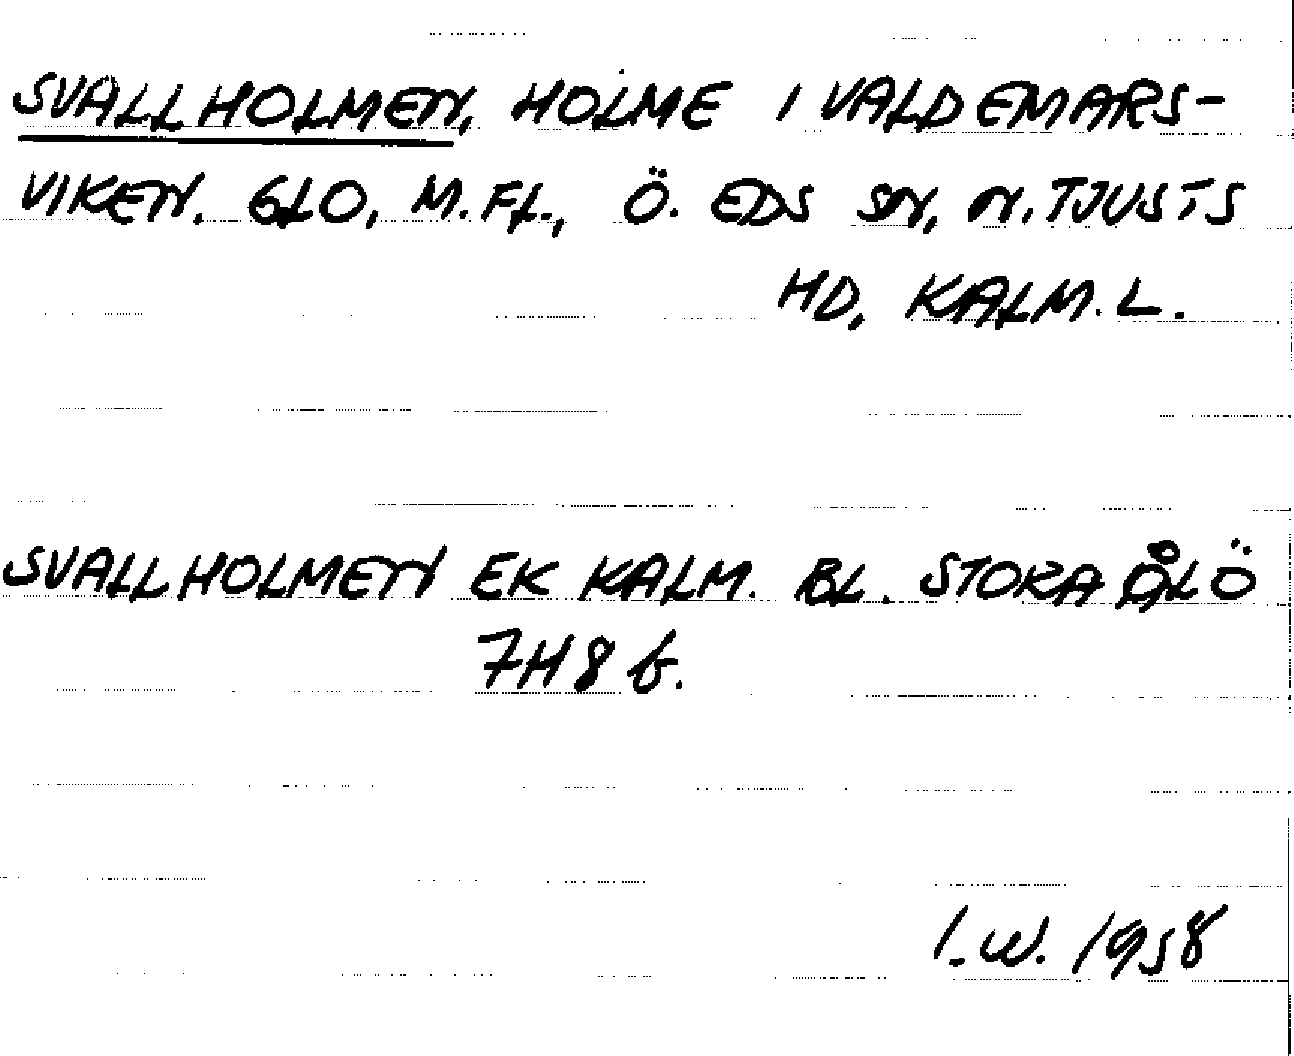 SVALLHOLMEN, HOLME I VALDEMARS-
VIKEN. GLO, M.FL., Ö. EDS SN, N. TJUSTS
HD, KALM. L.
SVALLHOLMEN EK KALM. BL. STORA ÅLÖ
7H8 b.
I.W. 1958